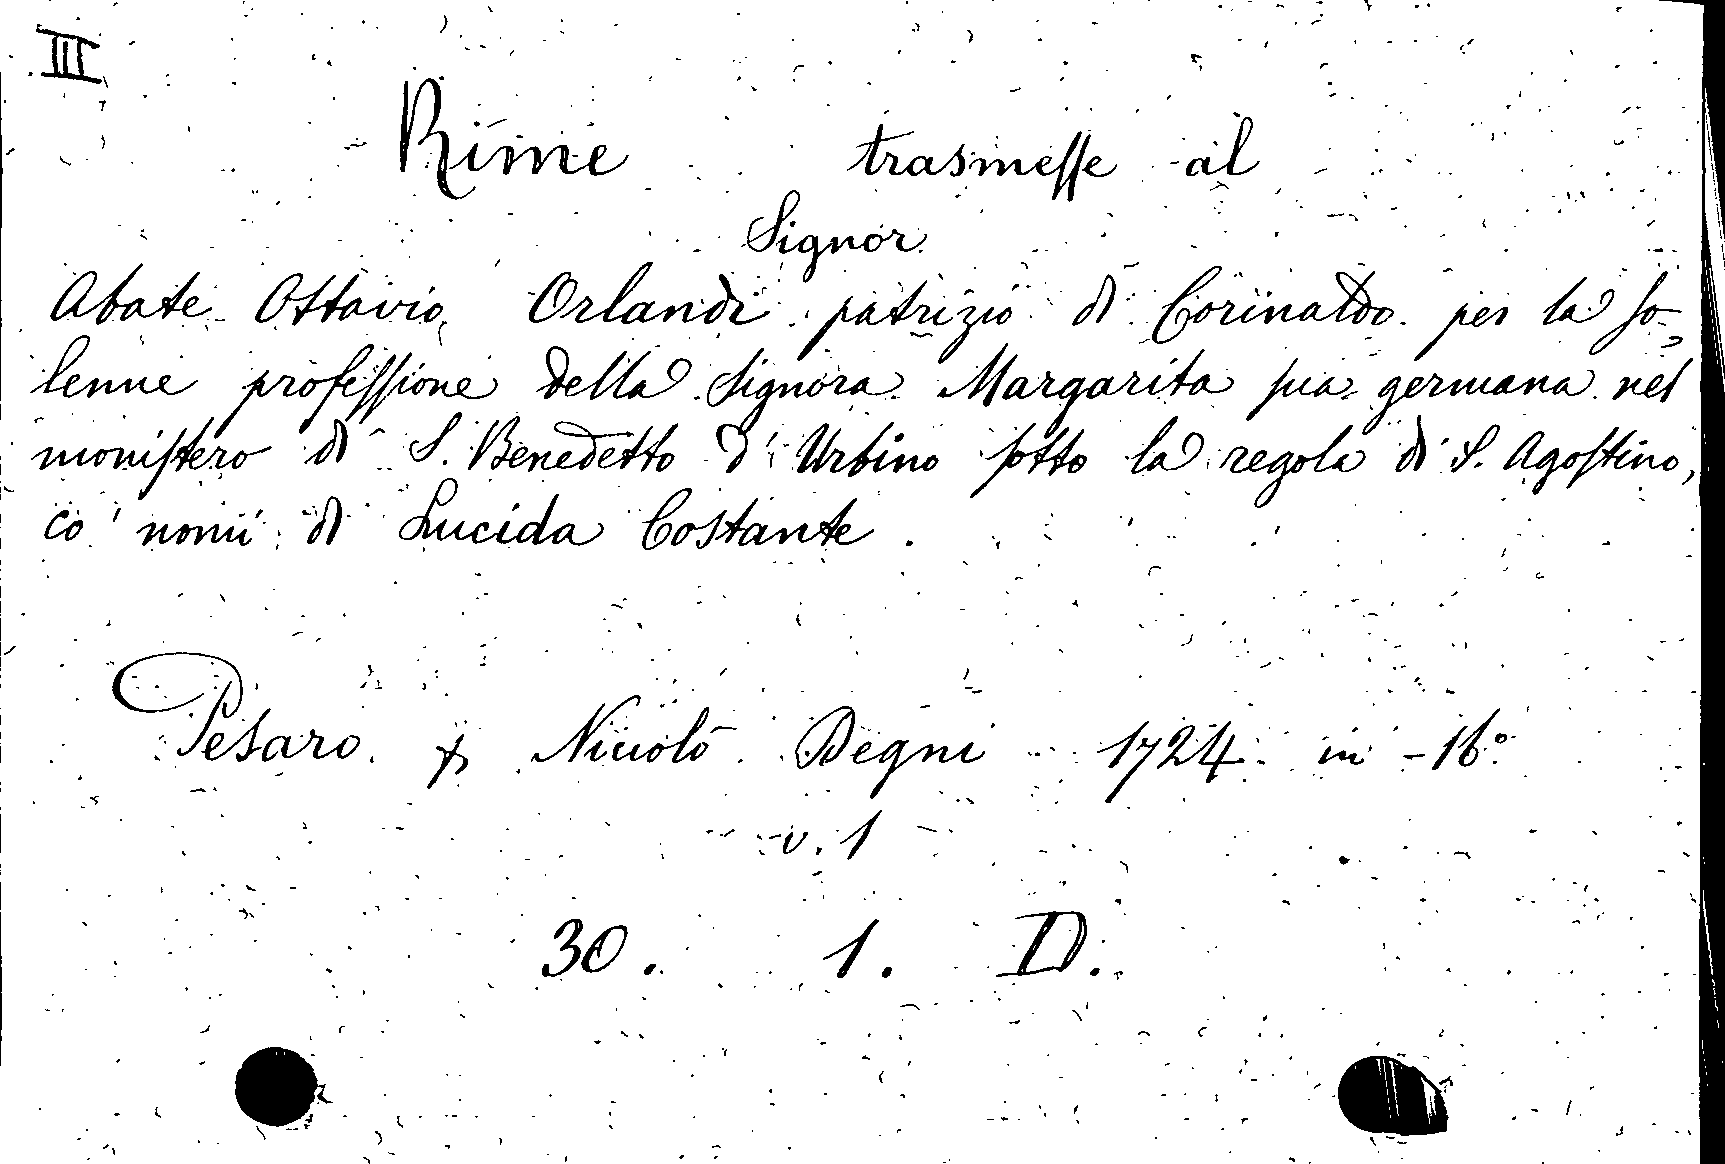 III
Rime trasmesse al
Signor
Abate Ottavio Orlandi patrizio di Corinaldo per la so-
lenne professione della Signora Margarita sua germana nel
monistero di S. Benedetto d'Urbino sotto la regola di S. Agostino,
co' nomi di Lucida Costante.
Pesaro p Niccolò Degni 1724 in-16°
v. 1
30. 1. D.